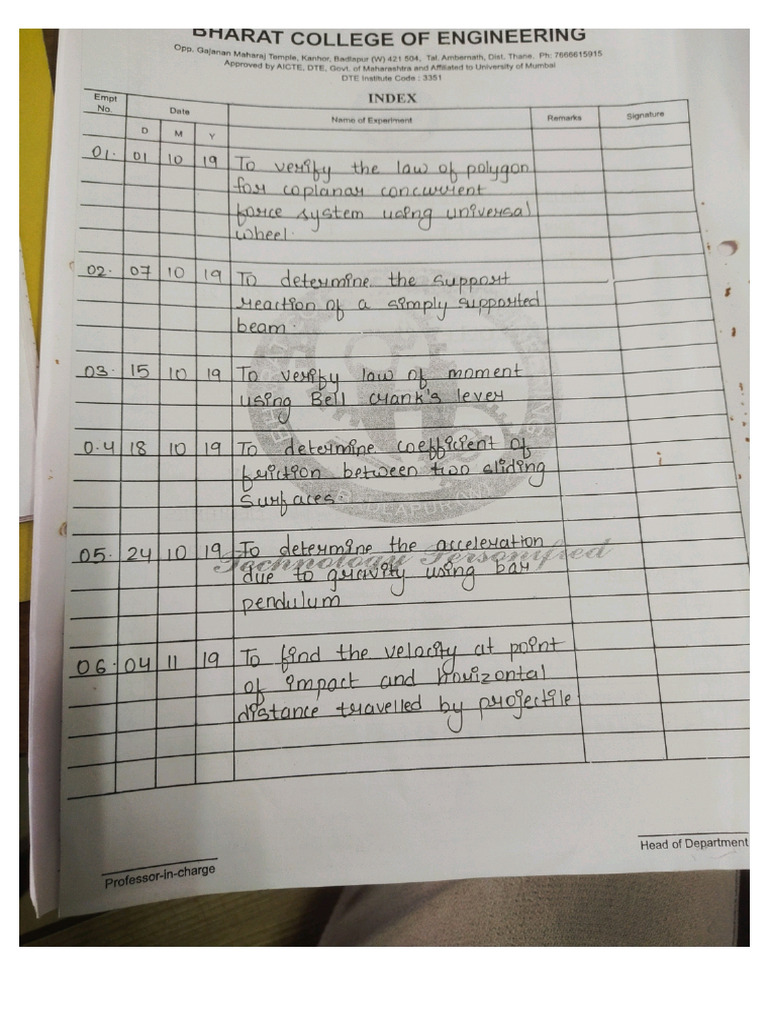 BHARAT COLLEGE OF ENGINEERING
Opp. Gajanan Maharaj Temple, Kanhor, Badlapur (W) 421 504, Tal. Ambernath, Dist. Thane, Ph: 7666615915
Approved by AICTE, DTE, Govt. of Maharashtra and Affiliated to University of Mumbai
DTE Institute Code : 3351
INDEX
Empt No. Date Name of Experiment Remarks Signature
D M Y
01. 01 10 19 To verify the law of polygon
for coplanar concurrent
force system using universal
wheel.
02. 07 10 19 To determine the support
reaction of a simply supported
beam.
03. 15 10 19 To verify law of moment
using Bell crank's lever
0.4 18 10 19 To determine coefficient of
friction between two sliding
surfaces.
05. 24 10 19 To determine the acceleration
Technology Personified
due to gravity using bar
pendulum
06. 04 11 19 To find the velocity at point
of impact and horizontal
distance travelled by projectile
Professor-in-charge Head of Department